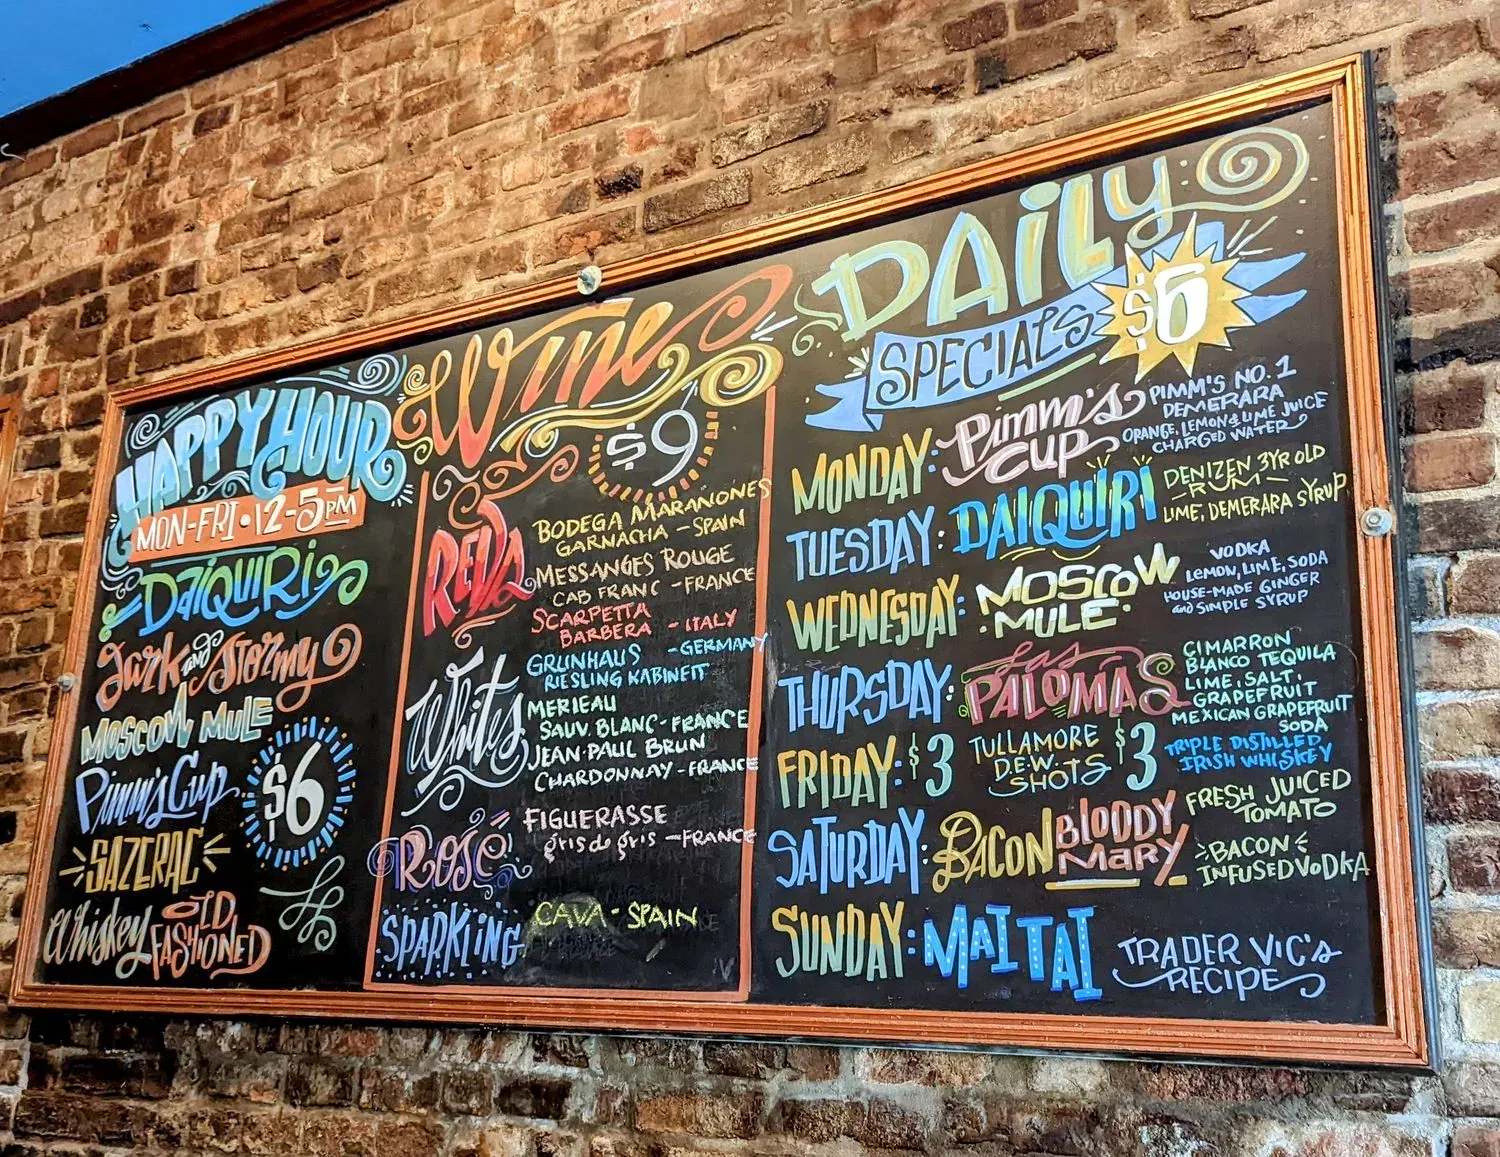 HAPPY HOUR
MON-FRI • 12-5PM
DAIQUIRI
Dark and Stormy
MOSCOW MULE
Pimm's Cup
$6
SAZERAC
Whiskey OLD FASHIONED
Wine
$9
REDS
BODEGA MARANONES
GARNACHA - SPAIN
MESSANGES ROUGE
CAB FRANC - FRANCE
SCARPETTA
BARBERA - ITALY
Whites
GRUNHAUS - GERMANY
RIESLING KABINETT
MERIEAU
SAUV. BLANC - FRANCE
JEAN-PAUL BRUN
CHARDONNAY - FRANCE
ROSÉ
FIGUERASSE
gris de gris - FRANCE
SPARKLING
CAVA - SPAIN
DAILY
SPECIALS $6
MONDAY: Pimm's CUP
PIMM'S NO. 1
DEMERARA
ORANGE, LEMON & LIME JUICE
CHARGED WATER
TUESDAY: DAIQUIRI
DENIZEN 3YR OLD
- RUM -
LIME, DEMERARA SYRUP
WEDNESDAY: MOSCOW MULE
VODKA
LEMON, LIME, SODA
HOUSE-MADE GINGER
and SIMPLE SYRUP
THURSDAY: Las PALOMAS
CIMARRON
BLANCO TEQUILA
LIME, SALT,
GRAPEFRUIT
MEXICAN GRAPEFRUIT
SODA
FRIDAY: $3 TULLAMORE D.E.W. SHOTS $3
TRIPLE DISTILLED
IRISH WHISKEY
SATURDAY: BACON BLOODY MARY
FRESH JUICED
TOMATO
BACON
INFUSED VODKA
SUNDAY: MAI TAI
TRADER VIC'S
RECIPE